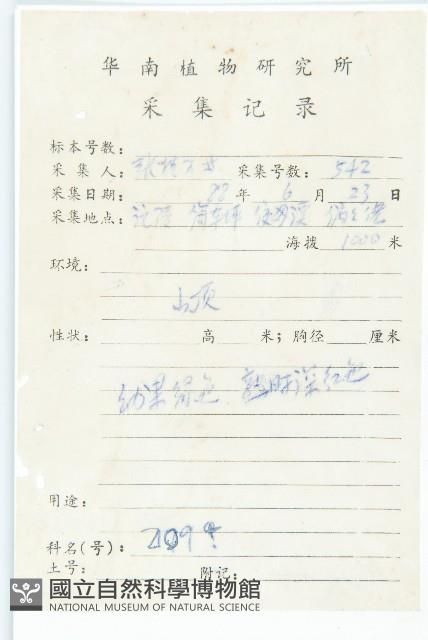 华南植物研究所
采集记录
标本号数：
采集人： 采集号数：542
采集日期： 年 6 月 23 日
采集地点：
海拨 1000 米
环境：
山顶
性状： 高 米；胸径 厘米
幼果绿色 熟时深红色
用途：
科名(号)： 209？
土号： 附记：
國立自然科學博物館
NATIONAL MUSEUM OF NATURAL SCIENCE